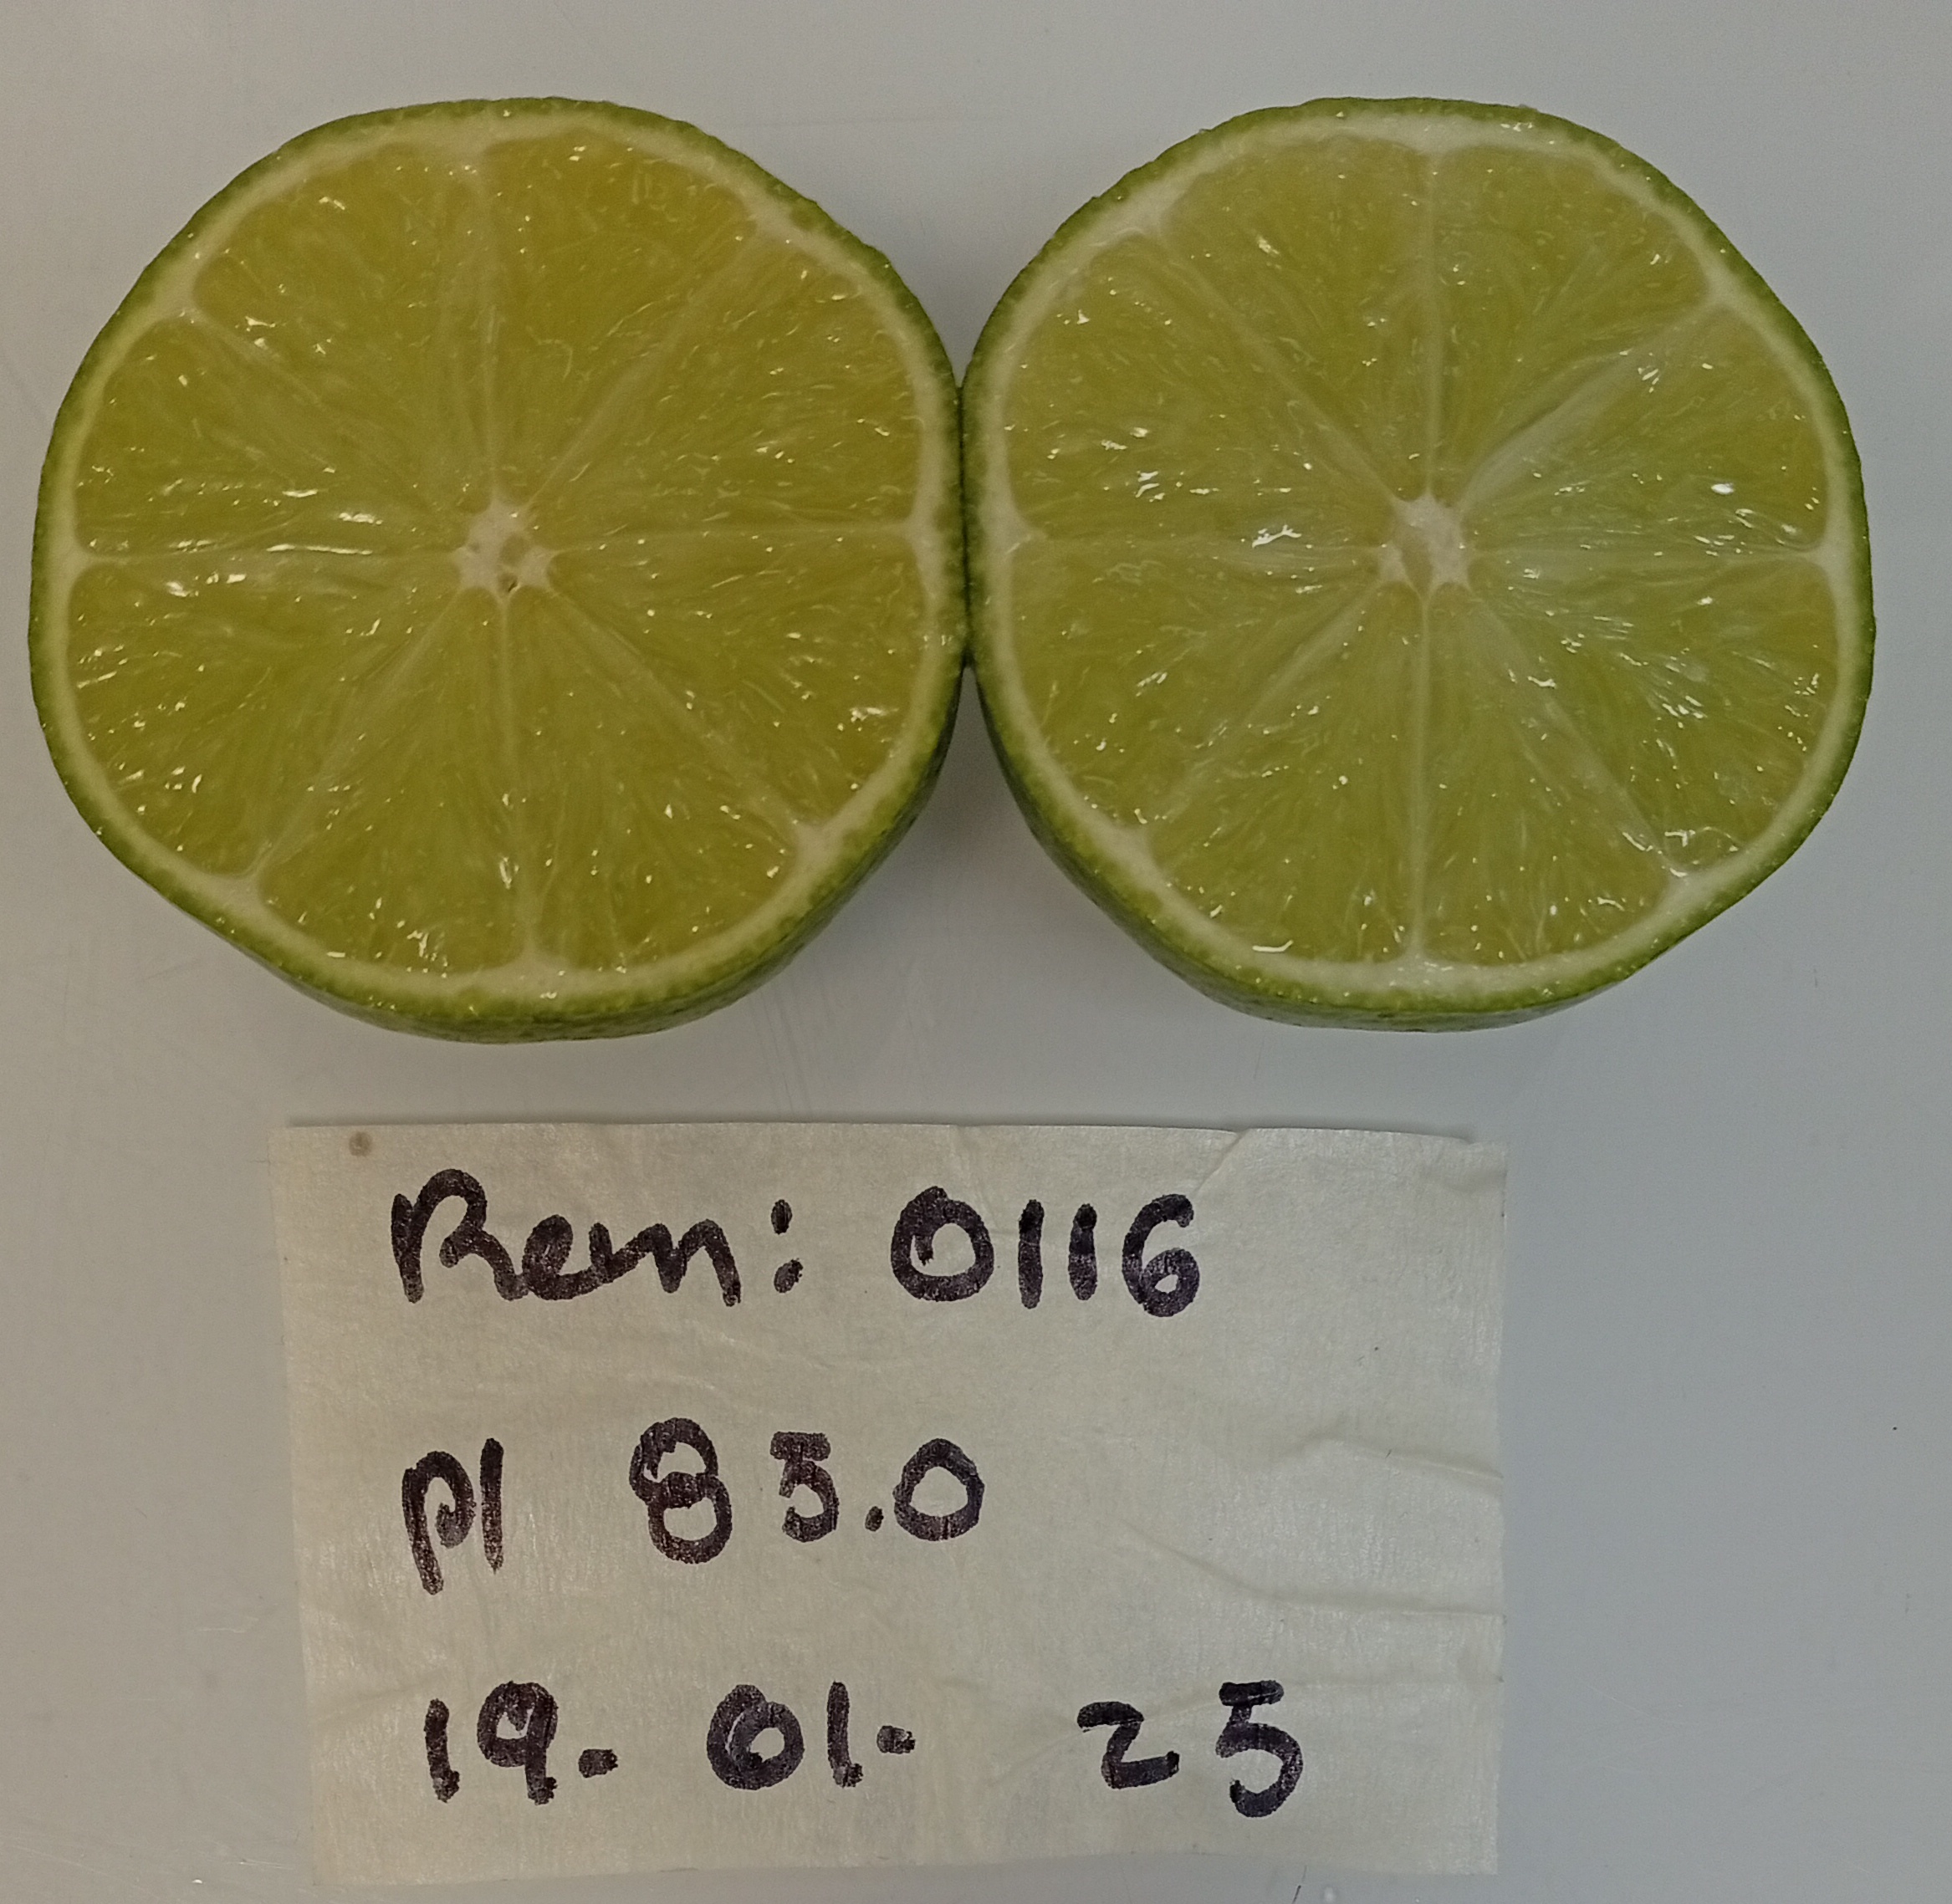 Rem: 0116
pl 85.0
19. 01. 25